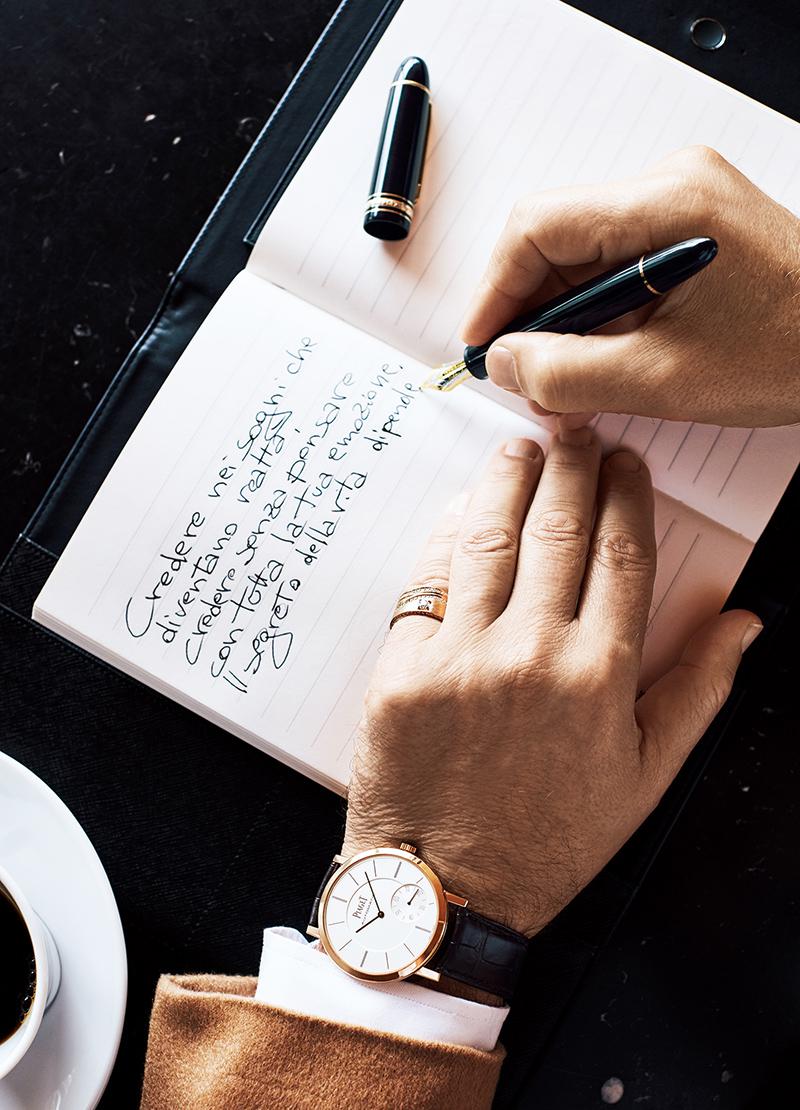 Credere nei sogni che
diventano realtà,
credere senza pensare
con tutta la tua emozione.
Il segreto della vita dipende
PIAGET